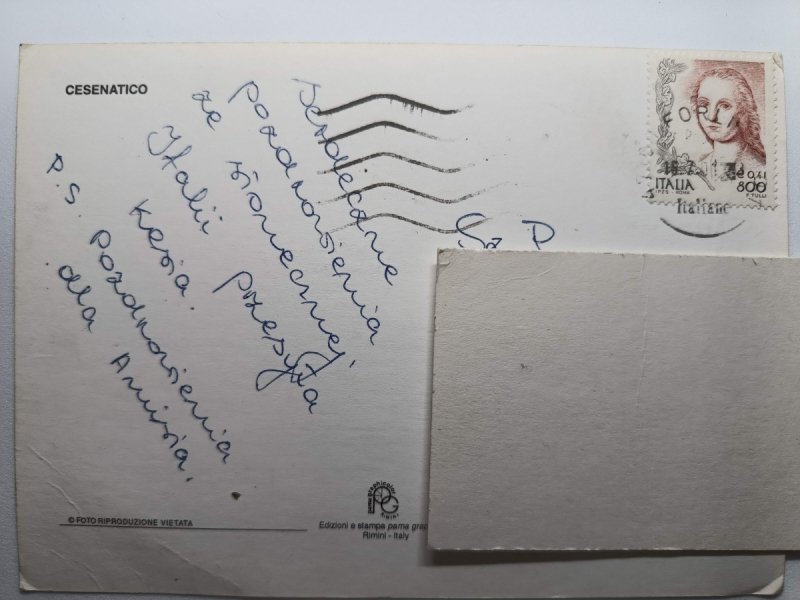 CESENATICO
Serdeczne
pozdrowienia
ze słonecznej
Italii przesyła
Kasia.
P.S. Pozdrowienia
dla Anusia.
© FOTO RIPRODUZIONE VIETATA
pama graphicolor
PG
RIMINI
Edizioni e stampa pama grap
Rimini - Italy
FORLI
Italiane
€ 0,41
ITALIA 800
I.P.Z.S. ROMA F. TULLI